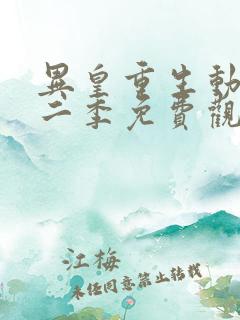 異皇重生動
二季免費觀
江梅
未经同意禁止转载